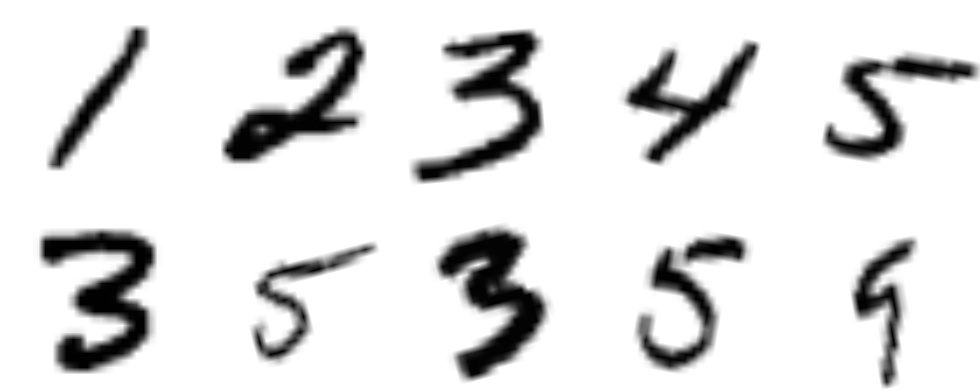 1 2 3 4 5
3 5 3 5 9